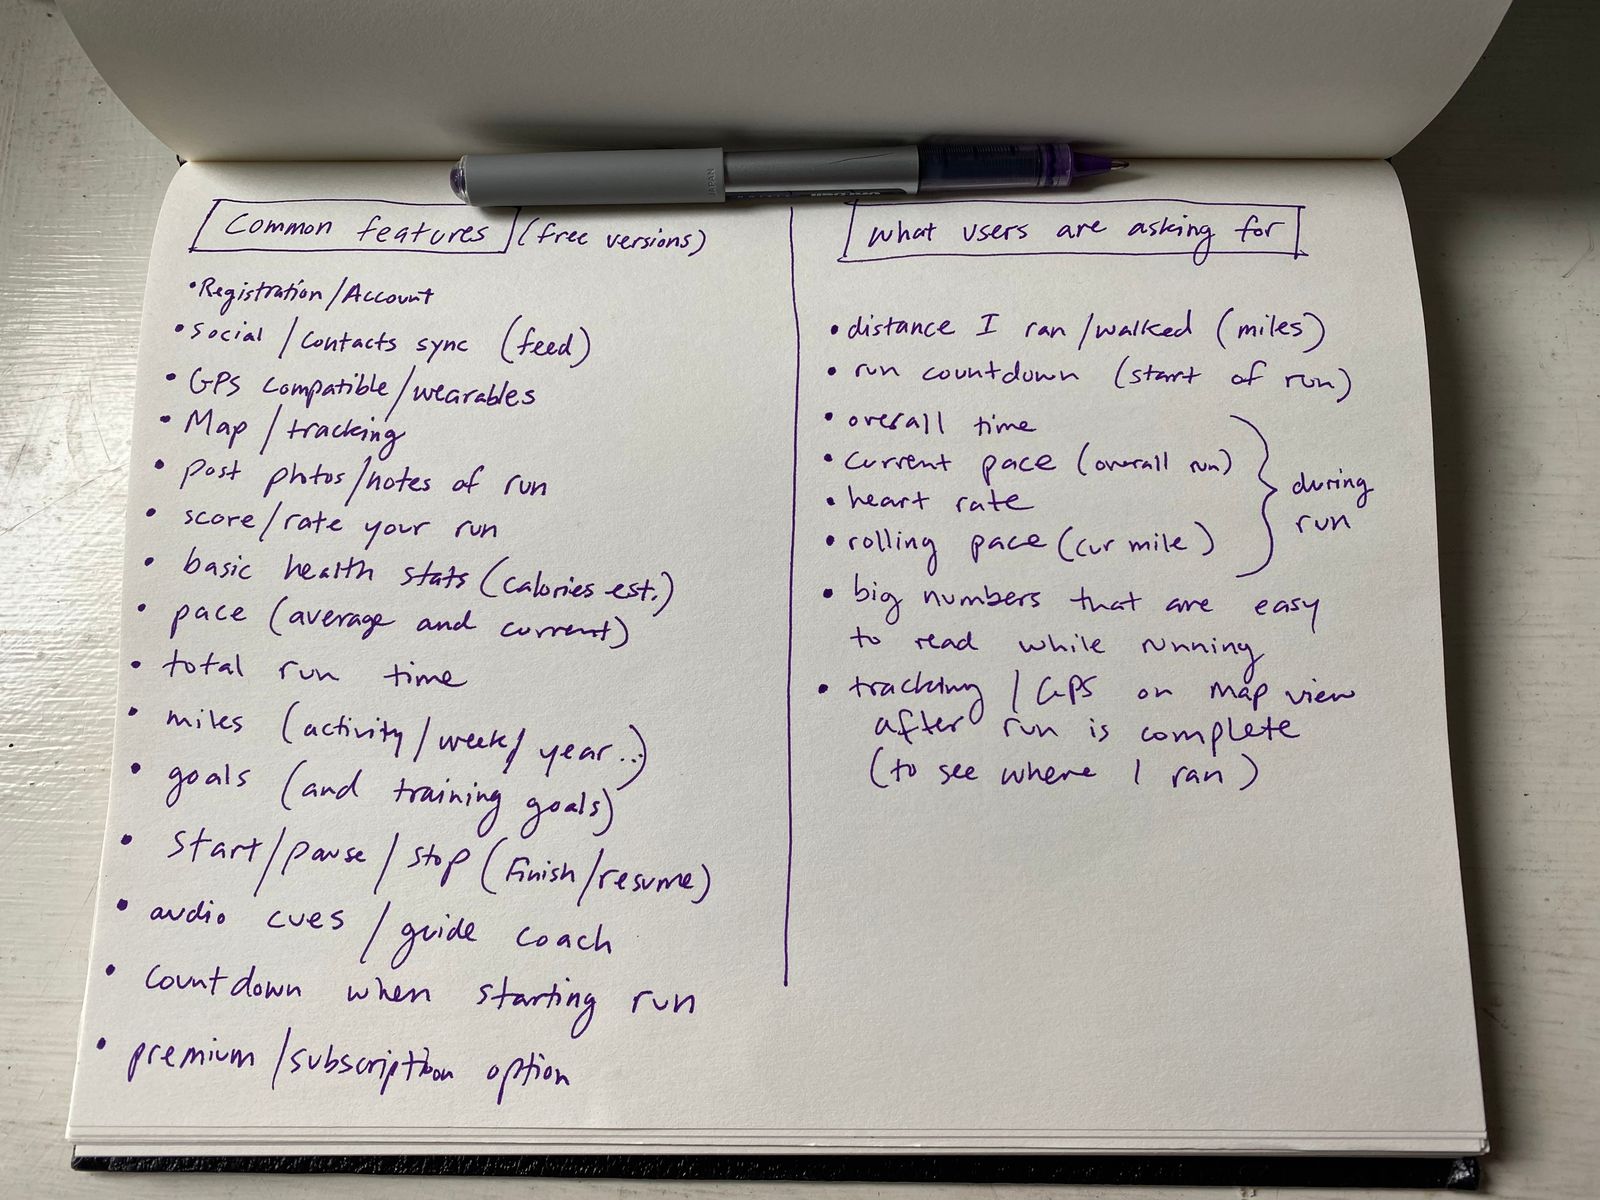 JAPAN
Common features (free versions)
• Registration/Account
• social/contacts sync (feed)
• GPS compatible/wearables
• Map/tracking
• post photos/notes of run
• score/rate your run
• basic health stats (calories est.)
• pace (average and current)
• total run time
• miles (activity/week/year...)
• goals (and training goals)
• start/pause/stop (Finish/resume)
• audio cues/guide coach
• countdown when starting run
• premium/subscription option
what users are asking for
• distance I ran/walked (miles)
• run countdown (start of run)
• overall time
• current pace (overall run)
• heart rate
• rolling pace (cur mile)
during
run
• big numbers that are easy
to read while running
• tracking/GPS on map view
after run is complete
(to see where I ran)